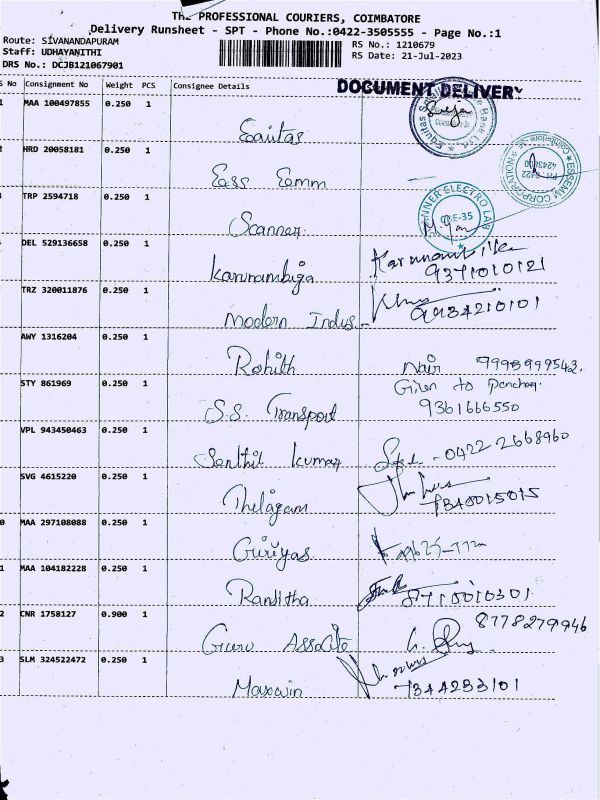 THE PROFESSIONAL COURIERS, COIMBATORE
Delivery Runsheet - SPT - Phone No.:0422-3505555 - Page No.:1
Route: SIVANANDAPURAM
Staff: UDHAYANITHI
DRS No.: DCJB121067901
RS No.: 1210679
RS Date: 21-Jul-2023
DOCUMENT DELIVERY
S No Consignment No Weight PCS Consignee Details
1 MAA 100497855 0.250 1 Equitas
2 HRD 20058181 0.250 1
TRP 2594718 0.250 1 Scanner
DEL 529136658 0.250 1 Karunambiga 9371010121
TRZ 320011876 0.250 1 Modern Indus. 9934210101
AWY 1316204 0.250 1 Rohith Nair 9998999542.
STY 861969 0.250 1 S.S. Transport Given to 9361666550
VPL 943450463 0.250 1 Senthil Kumar 0422 2668960
SVG 4615220 0.250 1 Thilagam
0 MAA 297108088 0.250 1 Guriyas
1 MAA 104182228 0.250 1 Ranjitha 8778279946
2 CNR 1758127 0.900 1 Guru
3 SLM 324522472 0.250 1 Maxwin 7344283101